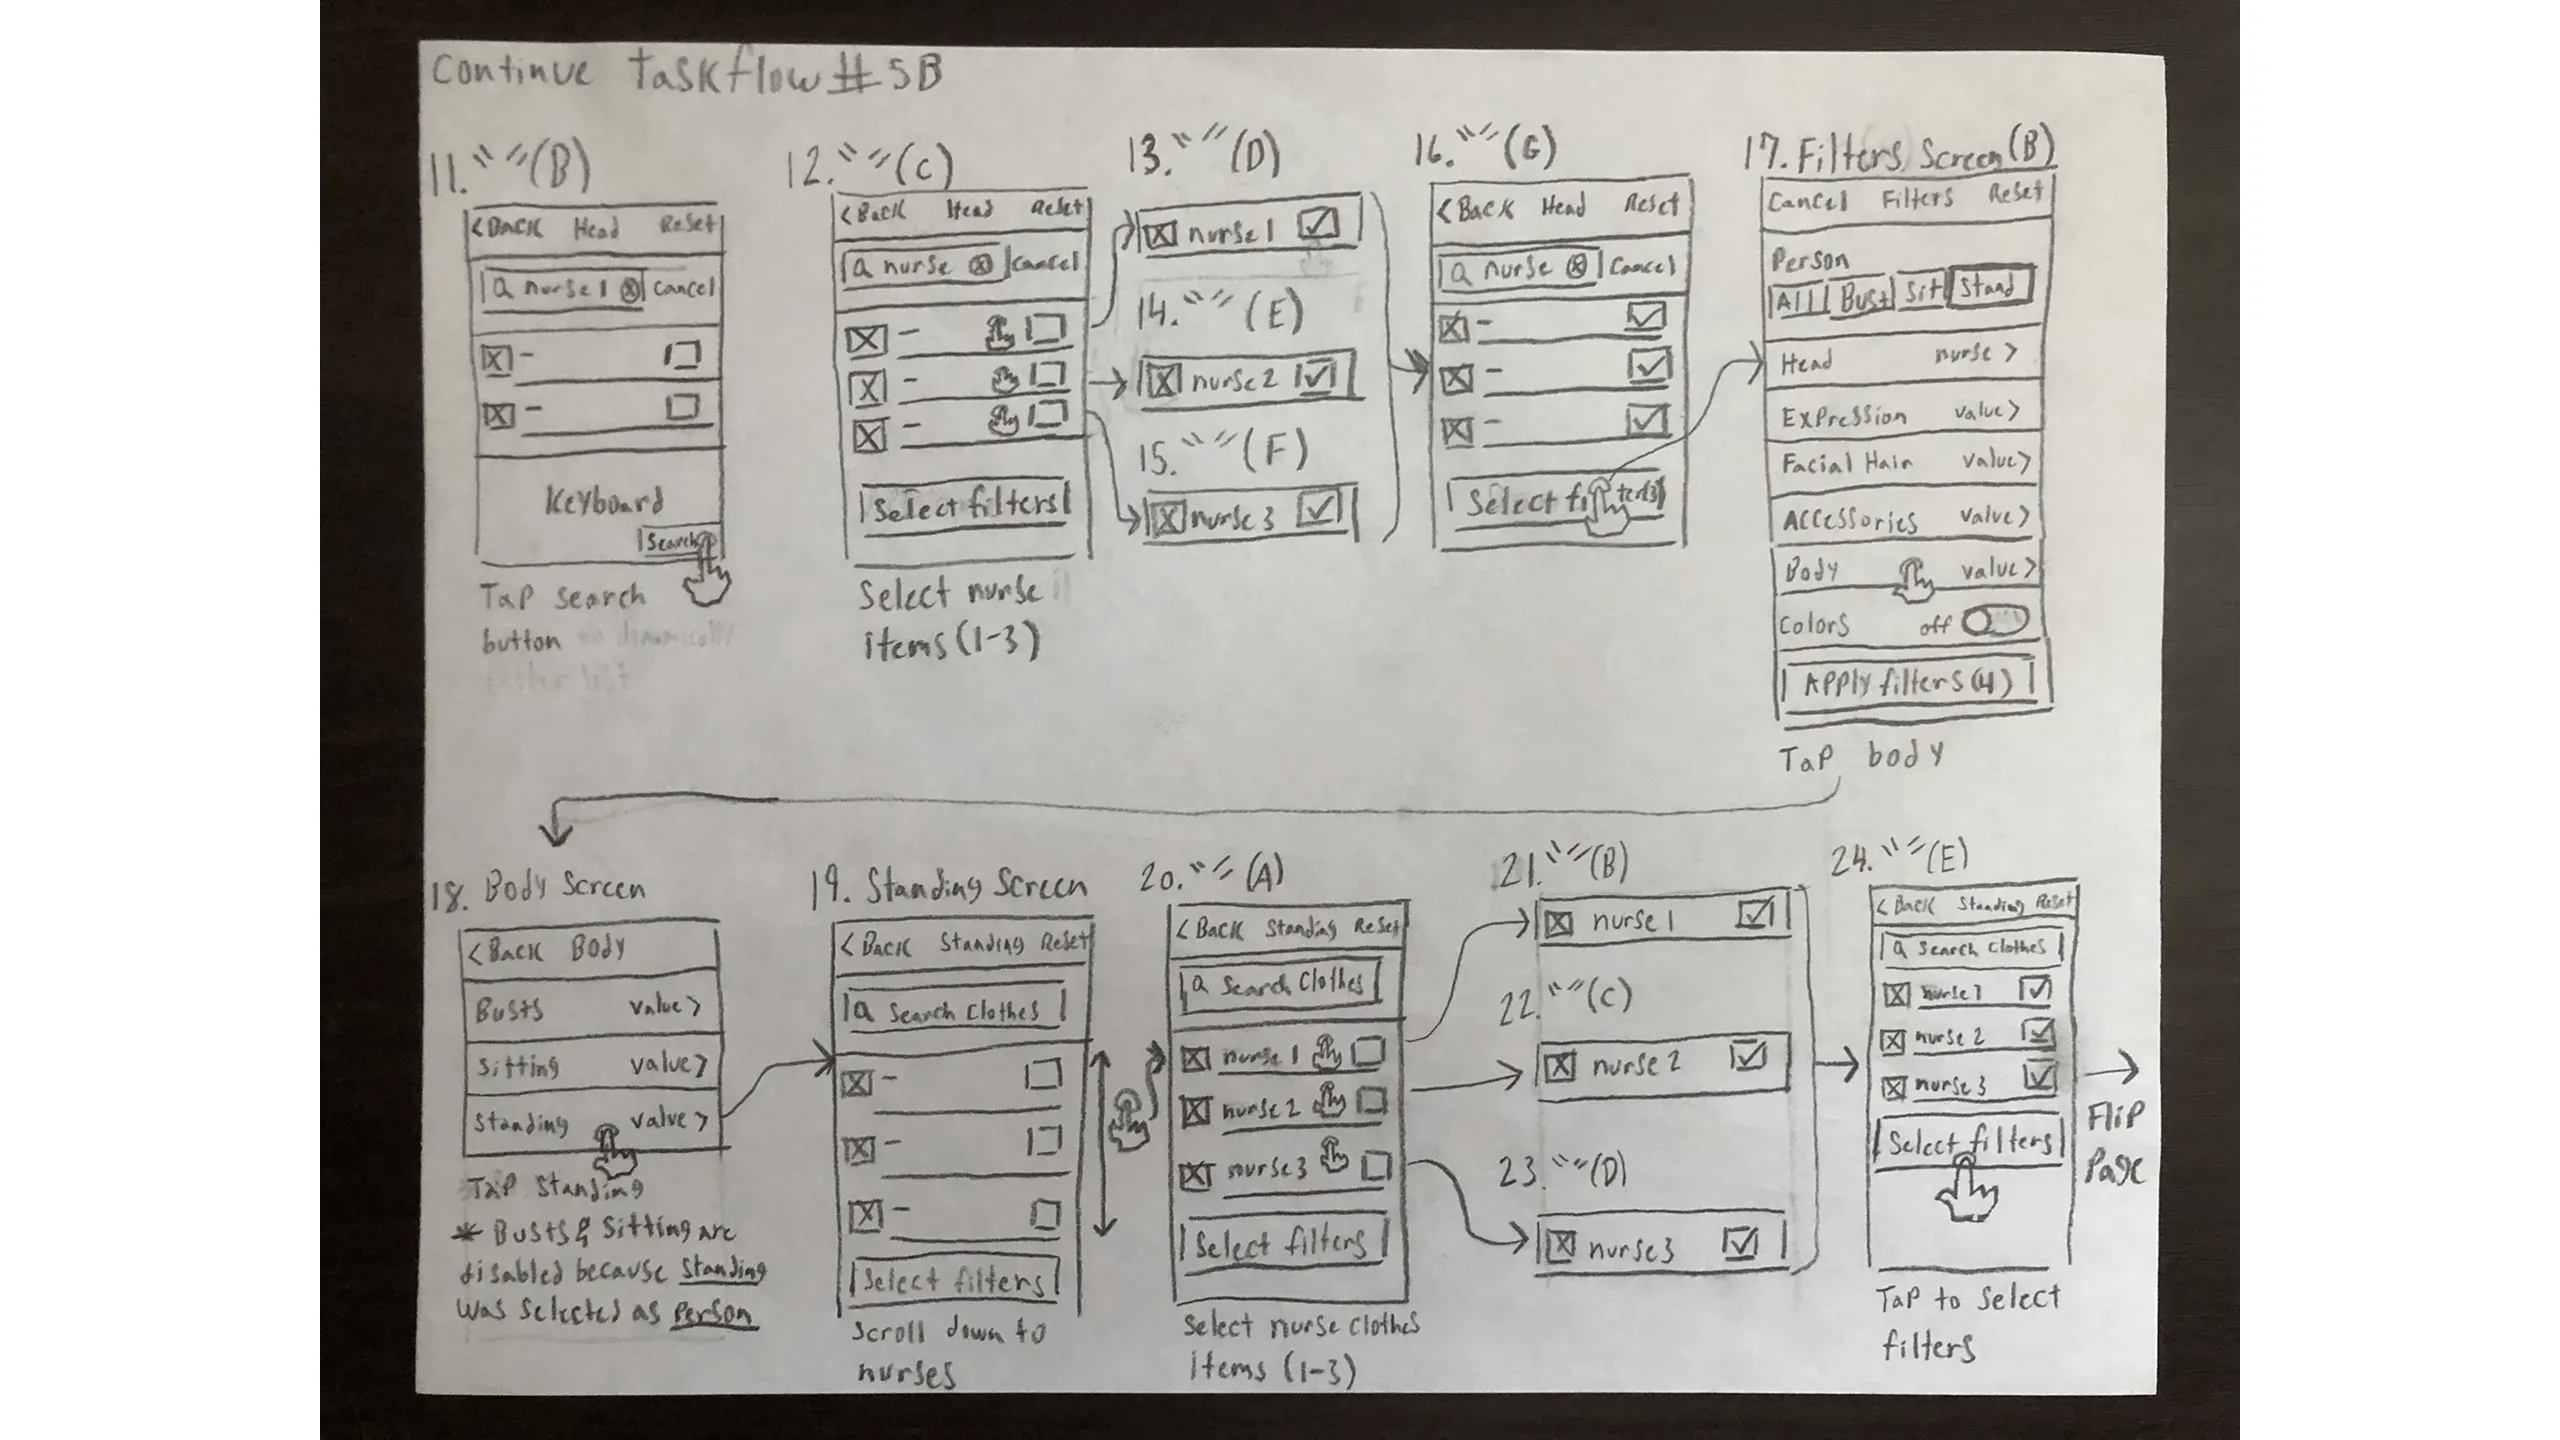 Continue Taskflow #5B
11. " " (B)
<BACK Head Reset
Q nurse1 ⓧ Cancel
-
-
Keyboard
Search
Tap search
button
12. " " (C)
<Back Head Reset
Q nurse ⓧ Cancel
-
-
-
Select filters
Select nurse
items (1-3)
13. " " (D)
nurse 1
14. " " (E)
nurse 2
15. " " (F)
nurse 3
16. " " (G)
<Back Head Reset
Q nurse ⓧ Cancel
-
-
-
17. Filters Screen (B)
Cancel Filters Reset
Person
All Bust Sit Stand
Head nurse >
Expression value>
Facial Hair value>
Accessories value>
Body value>
Colors off
Apply filters (4)
Tap body
18. Body Screen
<Back Body
Busts value>
Sitting value>
Standing value>
Tap Standing
* Busts & Sitting are
disabled because Standing
was selected as Person
19. Standing Screen
<Back Standing Reset
Q Search Clothes
-
-
-
Select filters
Scroll down to
nurses
20. " " (A)
<Back Standing Reset
Q Search Clothes
nurse 1
nurse 2
nurse 3
Select filters
Select nurse clothes
items (1-3)
21. " " (B)
nurse 1
22. " " (C)
nurse 2
23. " " (D)
nurse 3
24. " " (E)
<Back Standing Reset
Q Search Clothes
nurse 1
nurse 2
nurse 3
Select filters
Tap to select
filters
Flip
Page